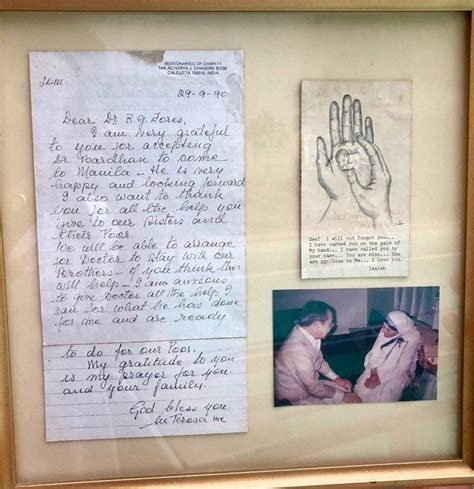 MISSIONARIES OF CHARITY
54A ACHARYA J. CHANDRA BOSE
CALCUTTA 700016, INDIA
LDM.
29-9-90
Dear Dr R.G. Fores,
I am very grateful
to you for accepting
Dr Bardhan to come
to Manila - He is very
happy and looking forward
I also want to thank
you for all the help you
give to our Sisters and
their Poor.
We will be able to arrange
for Doctor to stay with our
Brothers - if you think this
will help - I am anxious
to give Doctor all the help I
can for what he has done
for me and are ready
to do for our Poor.
My gratitude to you
is my prayer for you
and your family.
God bless you
M Teresa mc
See! I will not forget you...
I have carved you on the palm of
My hand... I have called you by
your name... You are mine... You
are precious to Me... I love you.
Isaiah